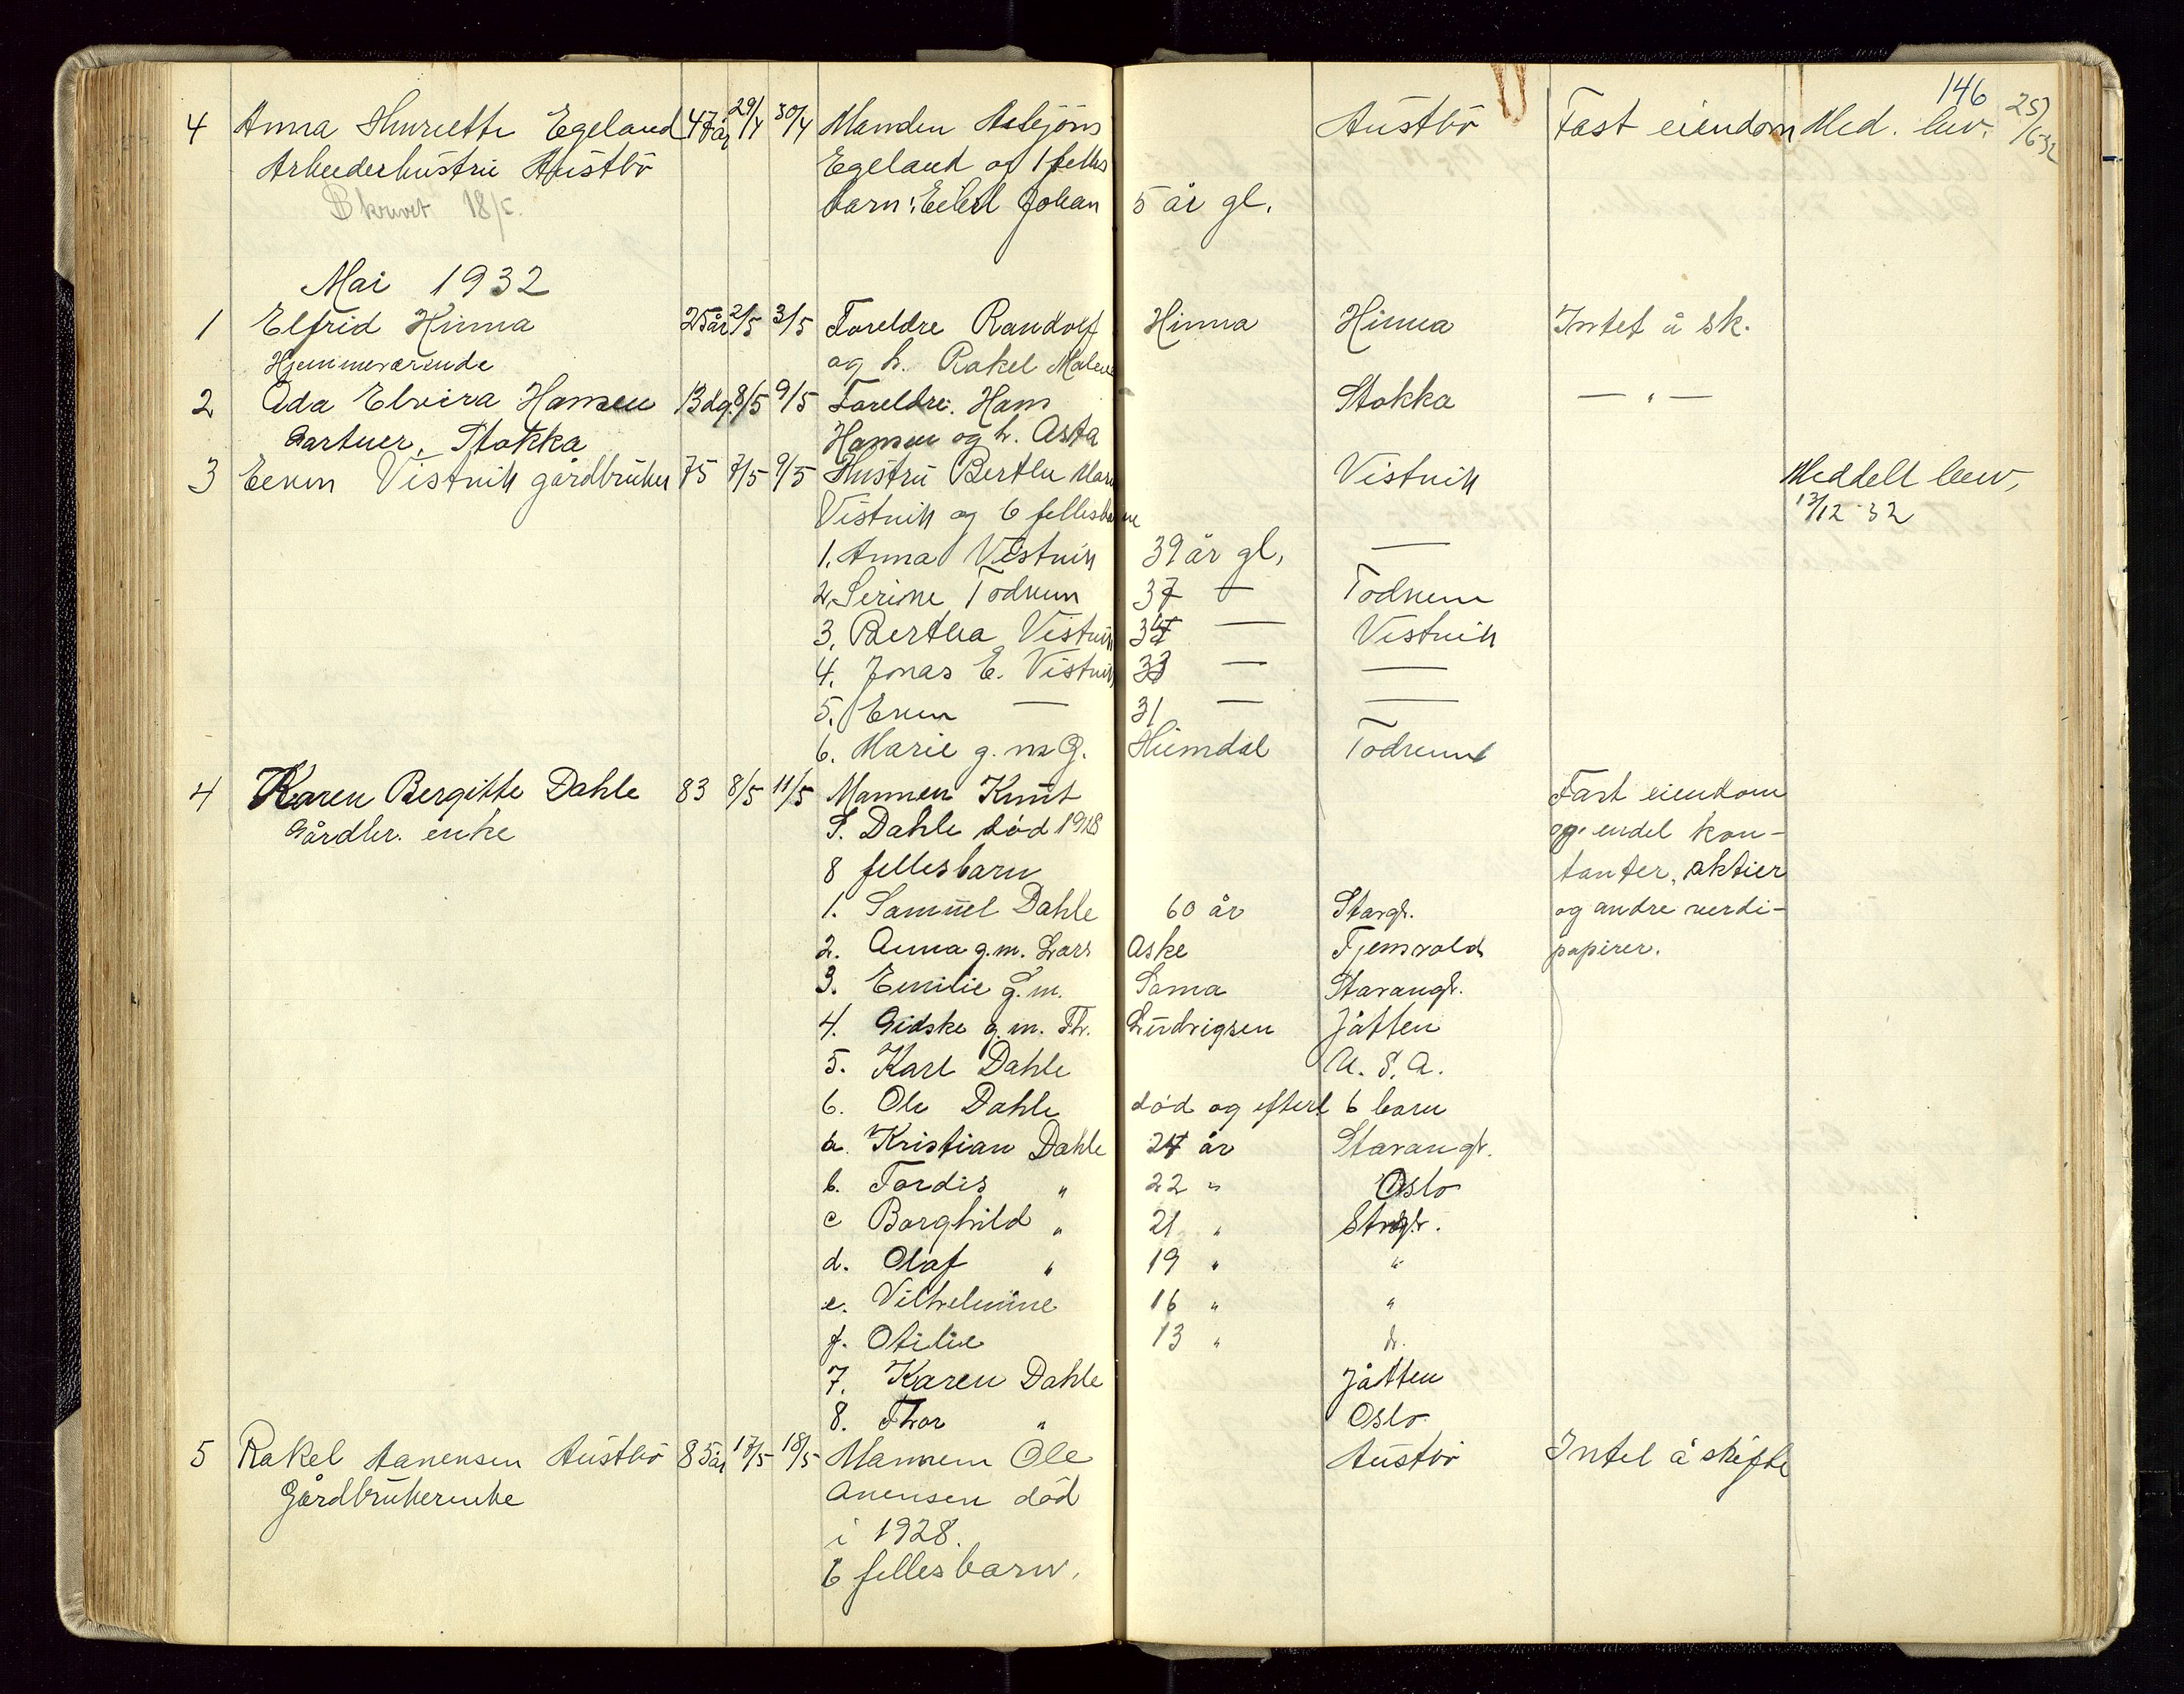 146
4 Anna Henriette Egeland 47 år 29/4 30/4 Manden Asbjörn Austbö Fast eiendom Med. bev. 25/6-32
Arbeiderhustru Austbö Egeland og 1 felles
Skrevet 18/5. barn: Eilert Johan 5 år gl.
Mai 1932
1 Elfrid Hinna 25 år 2/5 3/5 Foreldre Randolf Hinna Hinna Intet å sk.
Hjemmeværende og h. Rakel Malene
2 Ada Elvira Hansen 13 dg. 8/5 9/5 Foreldre: Hans Stokka — " —
Gartner, Stokka Hansen og h. Asta
3 Even Vistnik gårdbruker 75 7/5 9/5 Hustru Berthe Vistnik Meddelt bev,
Vistnik og 6 fellesbarn 13/12-32
1. Anna Vistnik 39 år gl. —
2. Serine Todnem 37 — Todnem
3. Bertha Vistnik — Vistnik
4. Jonas E. Vistnik 33 — —
5. Even — 31 — —
6. Marie g. m. G. Heimdal Todnem
4 Karen Bergitte Dahle 83 8/5 11/5 Mannen Knut Fast eiendom
Gårdbr. enke S. Dahle död 1928 og endel kon-
8 fellesbarn tanter, aktier
1. Samuel Dahle 60 år Stavgr. og andre verdi-
2. Anna g.m. Lars Aske Tjensvold papirer.
3. Emilie g.m. Sama Stavangr.
4. Gidske g.m. Th. Ludvigsen Jåtten
5. Karl Dahle U.S.A.
6. Ole Dahle död og efterl 6 barn
a. Kristian Dahle 24 år Stavangr.
b. Tordis " 22 " Oslo
c Borghild " 21 " Stvgr.
d. Olaf " 19 " "
e. Vilhelmine 16 " "
f. Otilie 13 "
7. Karen Dahle Jåtten
8. Thor " Oslo
5 Rakel Aanensen Austbö 85 år 17/5 18/5 Mannen Ole Austbö Intet å skifte
Gårdbrukerenke Anensen död
i 1928.
6 fellesbarn.